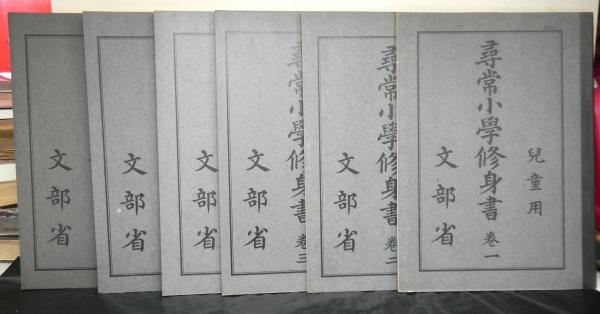 兒童用
尋常小學修身書 卷一
文部省
尋常小學修身書 卷二
文部省
尋常小學修身書 卷三
文部省
文部省
文部省
文部省